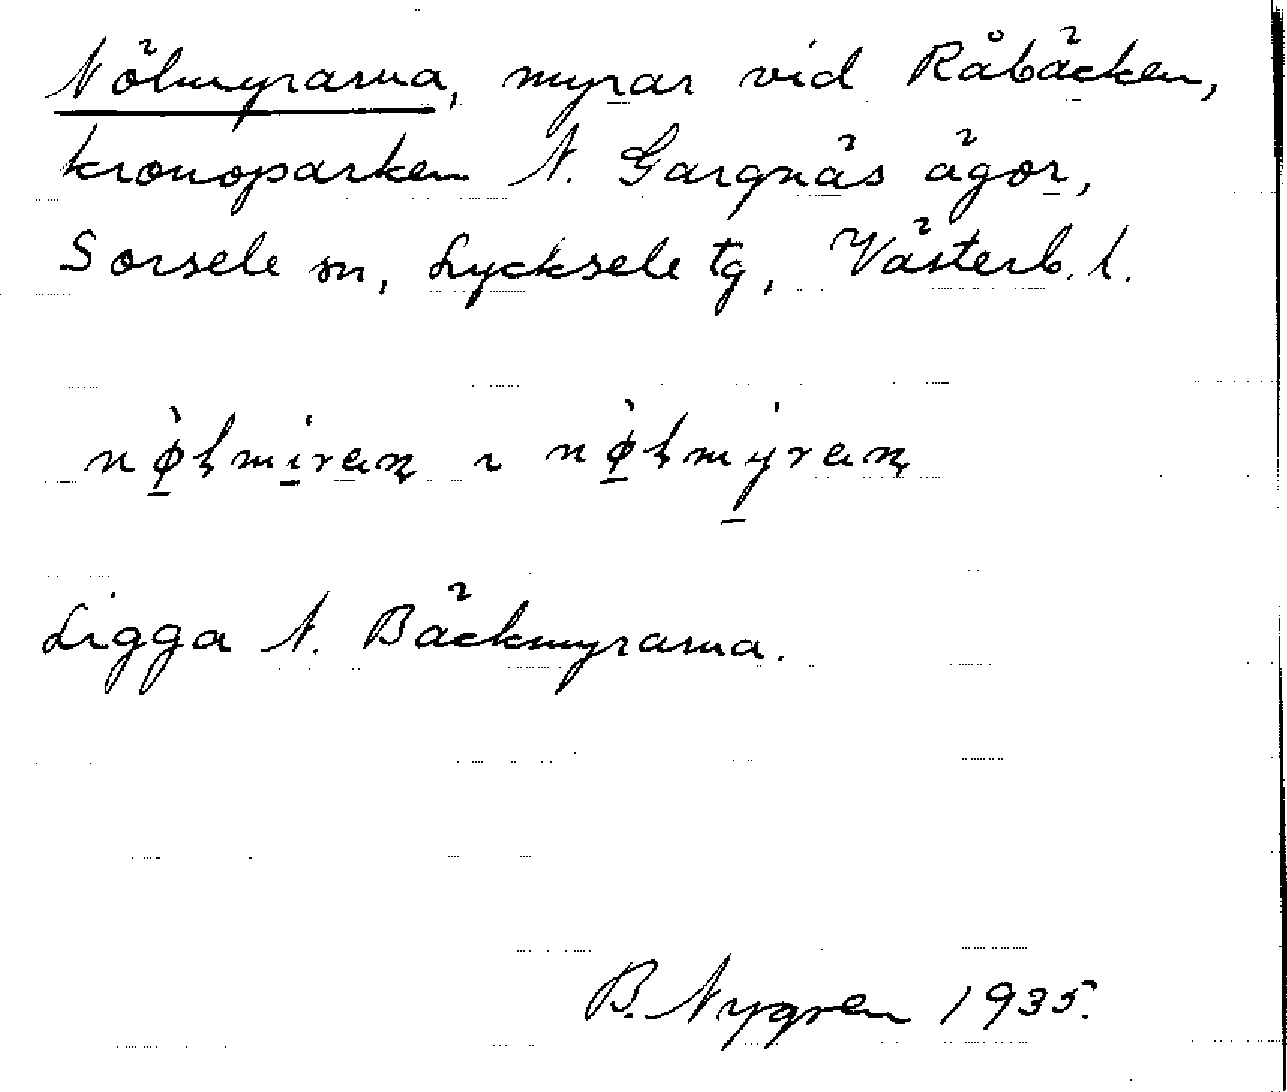 Nölmyrarna, myrar vid Råbäcken,
kronoparken N. Gargnäs ägor,
Sorsele sn, Lycksele tg, Västerb. l.
Ligga N. Bäckmyrarna.
B. Nygren 1935.